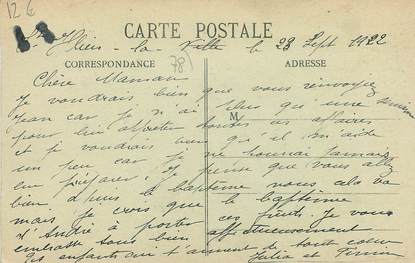 12 €
CARTE POSTALE
la Ville le 28 Sept 1922
CORRESPONDANCE
78
ADRESSE
Chère Maman
Je voudrais bien que vous renvoyiez
Jean car je n'ai plus qu'une
M
pour lui apprêter toutes ses affaires
et je voudrais bien qu'il m'aide
un peu car je ne pourrai jamais
Je pense que vous allez
bien. le baptême nous
mais je crois que le baptême
d'André à porter ces fruits. Je vous
embrasse tous bien affectueusement
enfants qui t'aiment de tout coeur
Julia et